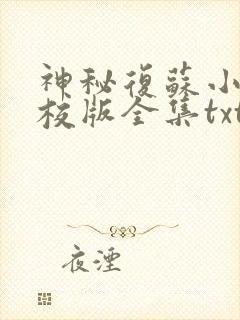 神秘復蘇小
校版全集txt
夜湮